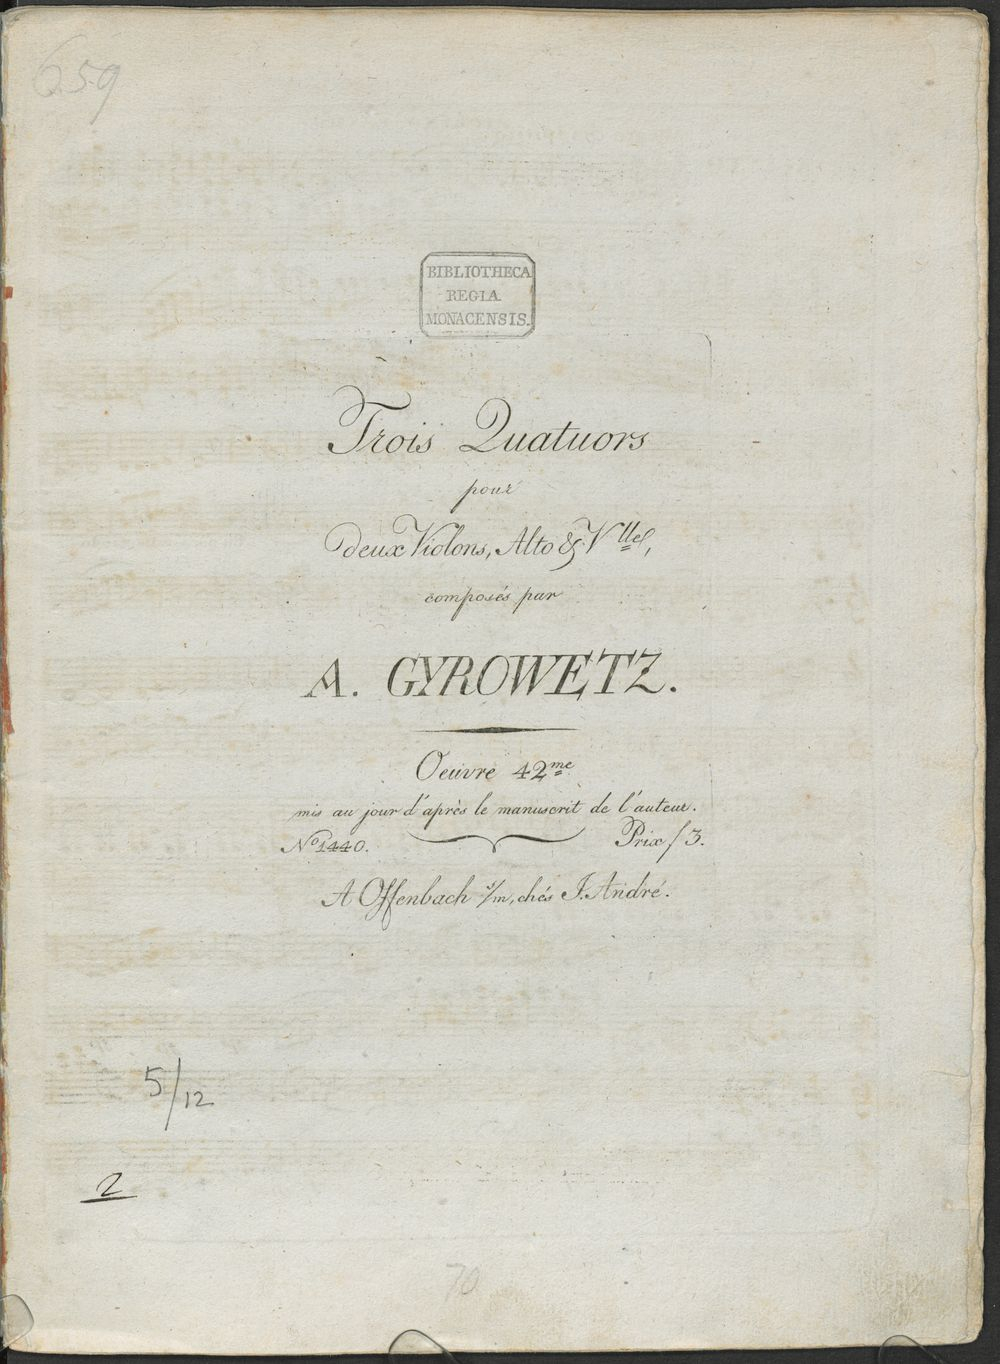 659
BIBLIOTHECA
REGIA
MONACENSIS.
Trois Quatuors
pour
deux Violons, Alto & Vllel,
composés par
A. GYROWETZ.
Oeuvre 42me
mis au jour d'après le manuscrit de l'auteur.
No 1440. Prix f 3.
A Offenbach s/m, chés J. André.
5/12
2
70